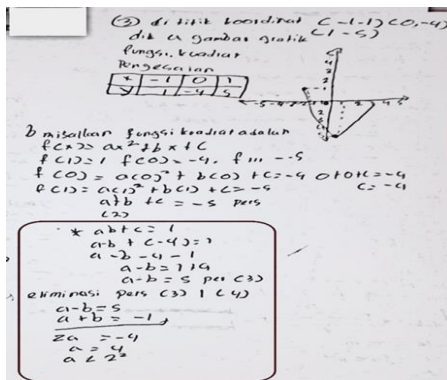 (3) di titik koordinat (-1-1)(0,-4)
dik a gambar grafik (1-5)
fungsi, kuadrat
Pengesaian
x -1 0 1
y 1 -4 5
b misalkan fungsi kuadrat adalah
f(x) = ax² + bx + c
f(1) = 1 f(0) = -4. f
f(0) = a(0)² + b(0) + c = -4 0+0+c = -4
f(1) = a(1)² + b(1) + c = -5 c = -4
a+b +c = -5 pers
(2)
* ab+c = 1
a-b + (-4) = 1
a-b-4-1
a-b = 1+4
a-b = 5 per (3)
eliminasi pers (3) | (4)
a-b = 5
a+b = -1
2a = -4
a = 4
a < 2²